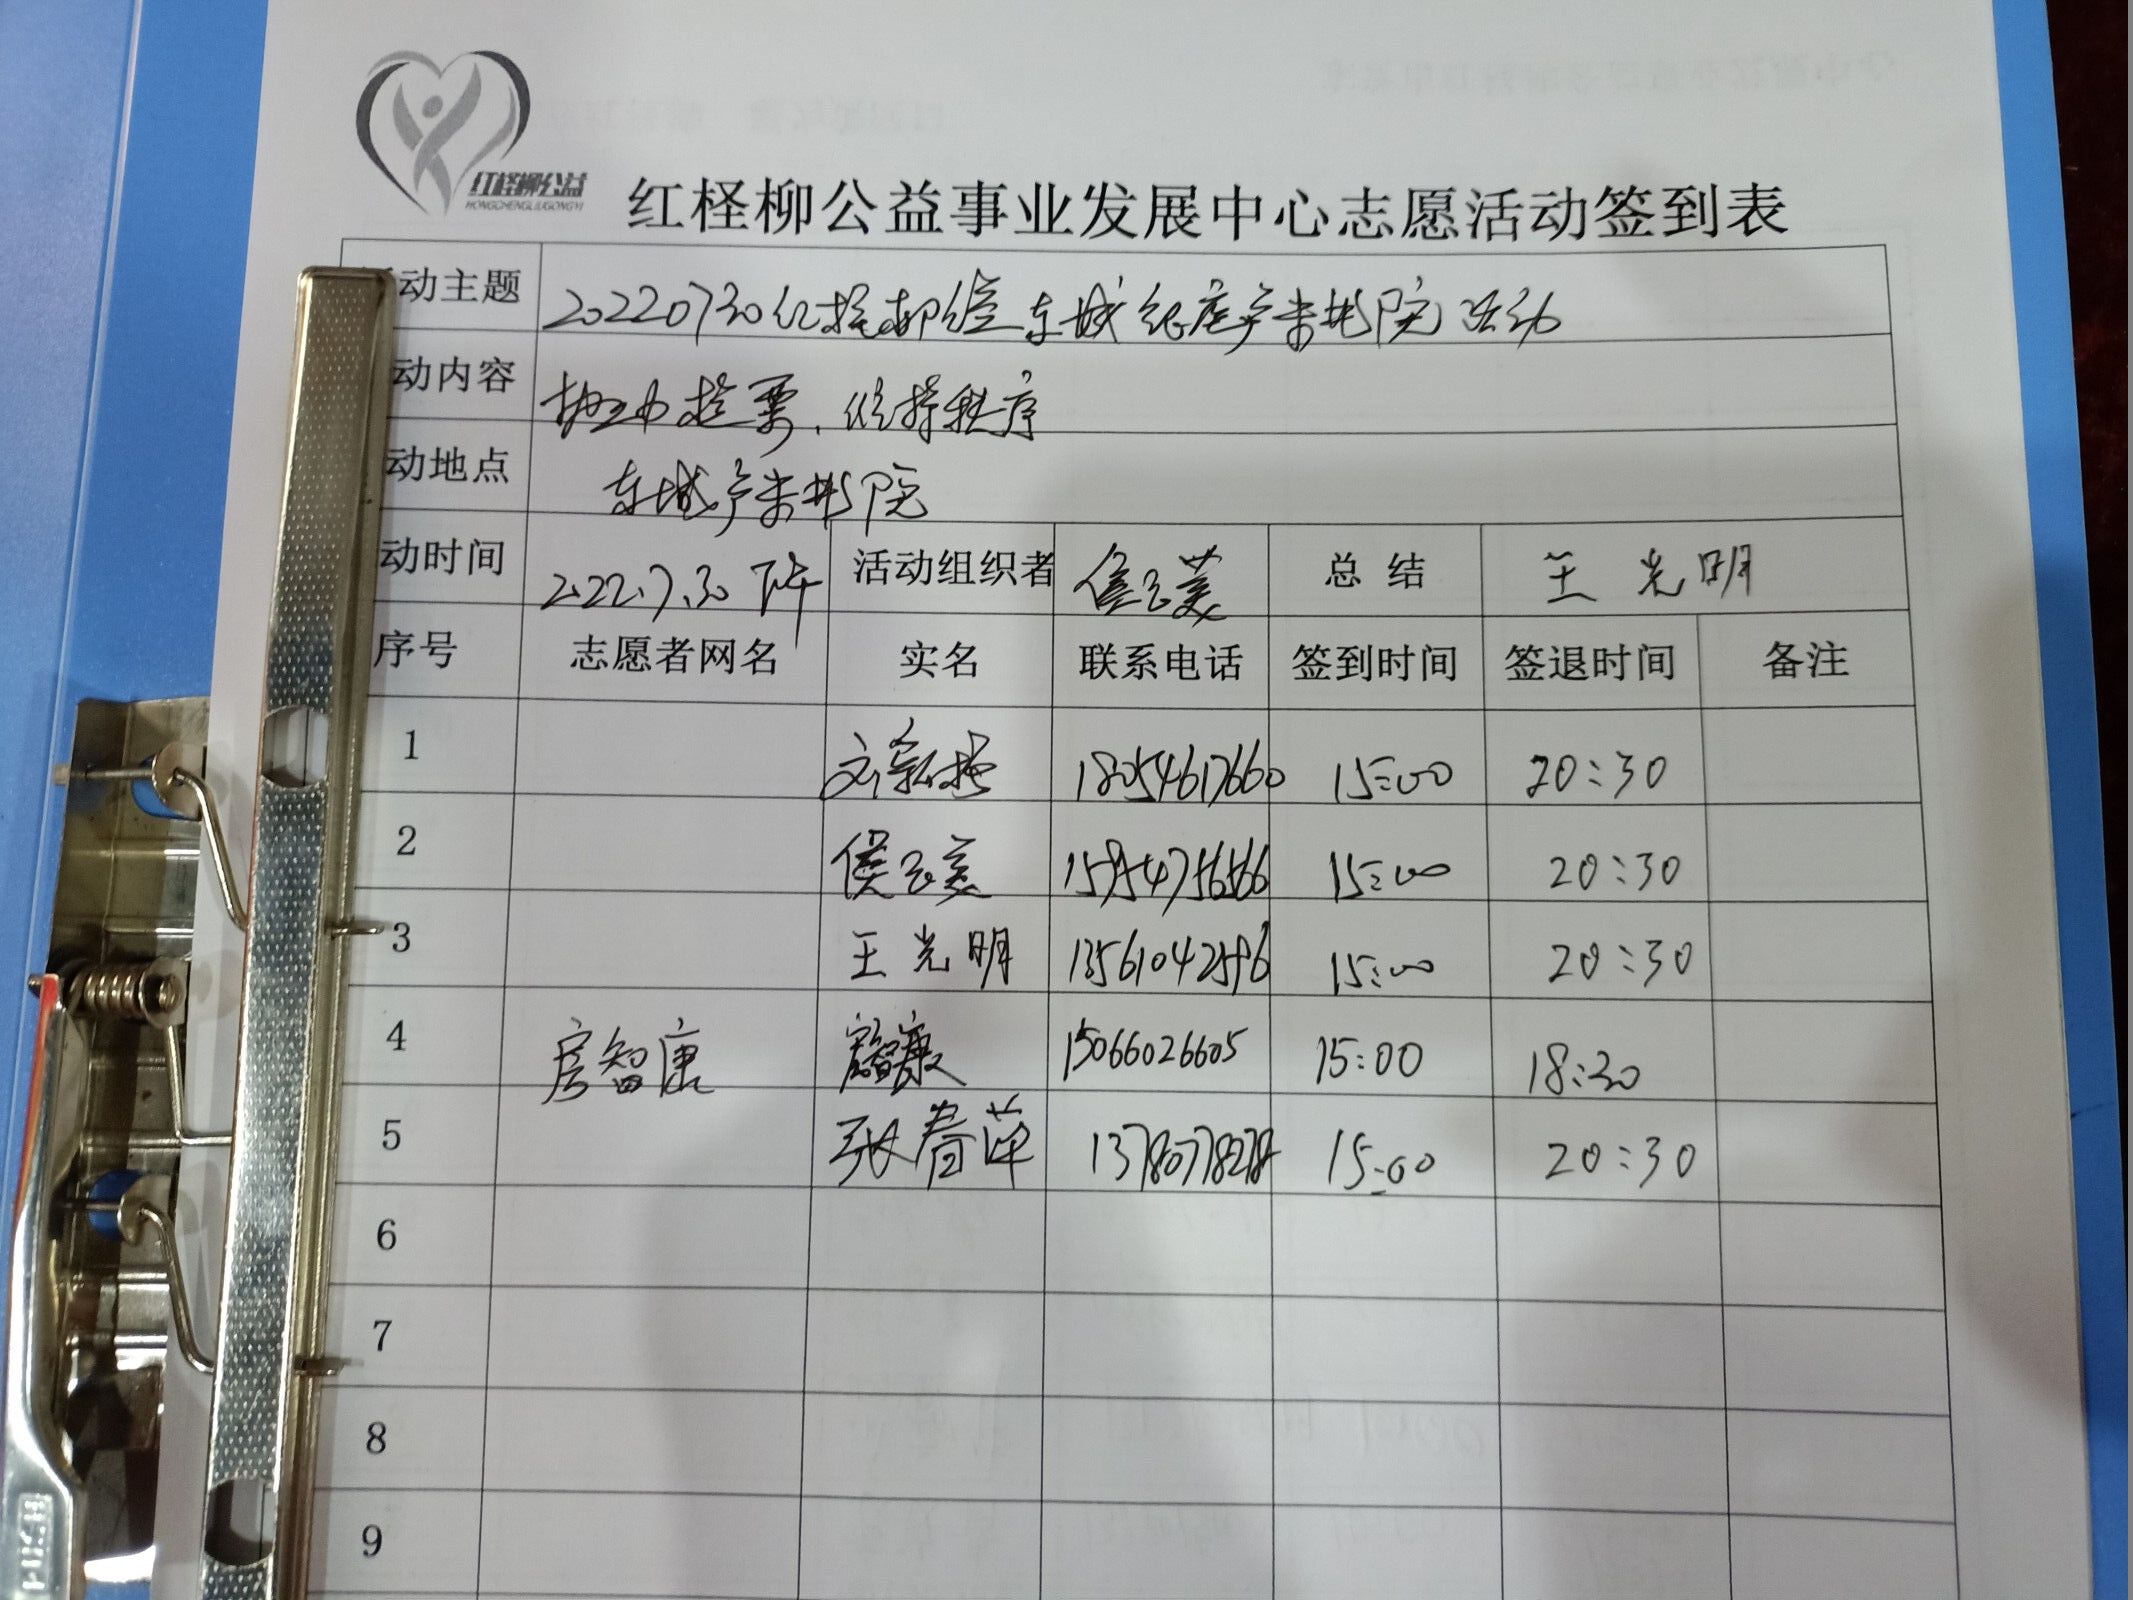 红柽柳公益
HONGCHENGLIUGONGYI
红柽柳公益事业发展中心志愿活动签到表
动主题 20220730红柽柳 东城 书院活动
动内容 协助检票、维持秩序
动地点 东城 书院
动时间 2022.7.30 下午 活动组织者 总结 王光明
序号 志愿者网名 实名 联系电话 签到时间 签退时间 备注
1 18054617660 15:00 20:30
2 15:00 20:30
3 王光明 13561042596 15:00 20:30
4 房智康 房智康 15066026605 15:00 18:30
5 张春萍 13780778278 15:00 20:30
6
7
8
9